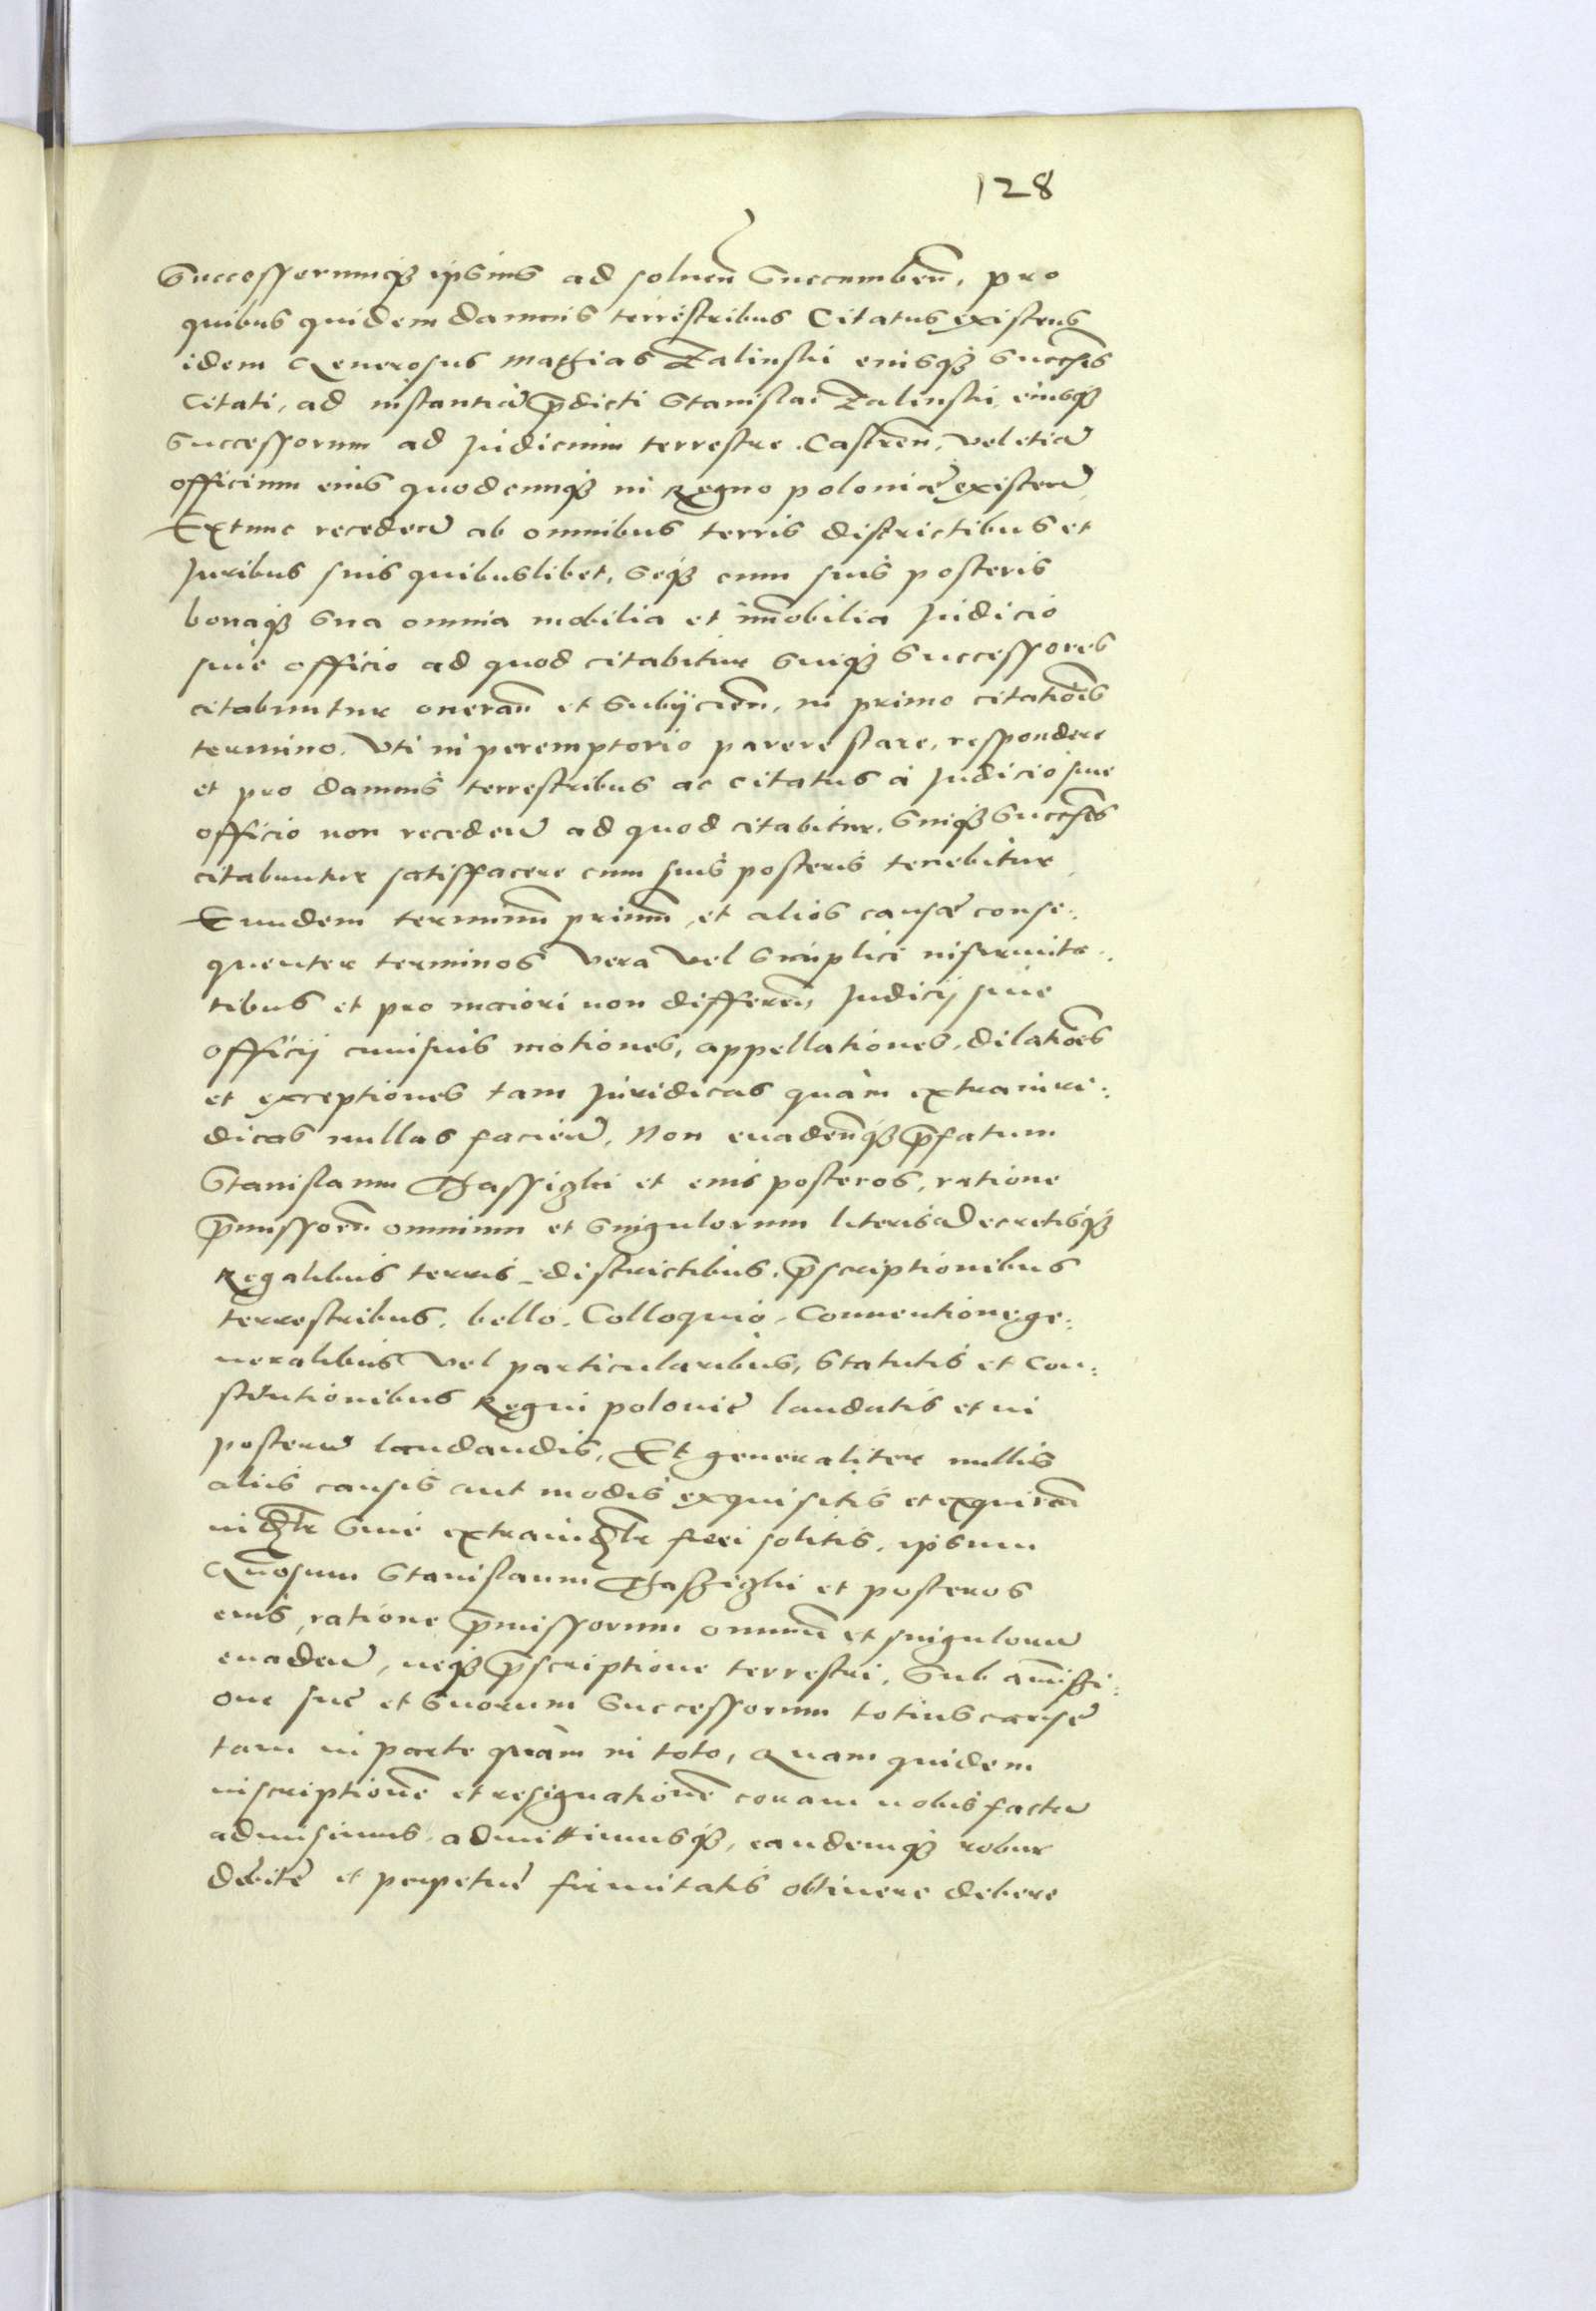 128
Successorumq3 ipsius ad soluen̄ Succumben̄, pro
quibus quidem damnis terrestribus Citatus existens
idem Generosus Mathias Zalinski eiusq3 Succēs̄
Citati, ad instantiā p̄dicti Stanislai Zalinski, eiusq3
Successorum ad Judicium terrestre Castren̄, vel etiā
officium eius quodcunq3 in Regno poloniæ existen̄,
Extunc receden̄ ab omnibus terris districtibus et
Juribus suis quibuslibet, Seq3 cum suis posteris
bonaq3 sua omnia mobilia et im̄obilia Judicio
siue officio ad quod citabitur Suiq3 Successores
citabuntur oneran̄ et Subijcien̄, in primo citatiōis
termino, Vti in peremptorio parere stare, respondere
et pro damnis terrestribus ac citatus à Judicio siue
officio non receden̄ ad quod citabitur, Suiq3 Succēs̄
citabuntur satisfacere cum suis posteris tenebitur,
Eundem terminum primū, et alios causæ conse:
quenter terminos Vera Vel Simplici infirmita:
tibus et pro maiori non differen̄, Judicij siue
officij cuiusuis motiones, appellationes, dilatiōes
et exceptiones tam Juridicas quàm extraiuri:
dicas nullas facien̄, Non euaden̄q3 p̄fatum
Stanislaum et eius posteros, ratione
p̄missoru̅ omnium et Singulorum literis Decretisq3
Regalibus terris districtibus, p̄scriptionibus
terrestribus, bello, Colloquio, Conuentione ge:
neralibus Vel particularibus, Statutis et Con:
stitutionibus Regni poloniæ laudatis et in
posterū laudandis, Et generaliter nullis
alijs causis aut modis exquisitis et exquiren̄
fieri solitis, ipsum
Gn̄osum Stanislaum et posteros
eius, ratione p̄missorum omniū et singulorū
euaden̄, neq3 p̄scriptione terrestri, Sub amissi:
one suæ et Suorum Successorum totius causæ
tam in parte quàm in toto, Quam quidem
inscriptionē et resignationē coram nobis factā
admisimus, admittimusq3, eandemq3 robur
debitæ et perpetuæ firmitatis obtinere debere